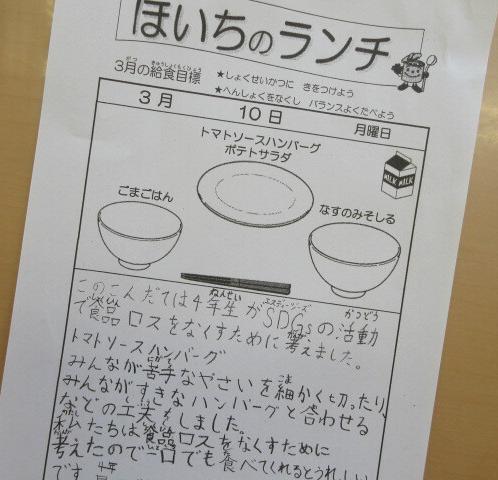 ほいちのランチ
3月の給食目標
★しょくせいかつに きをつけよう
★へんしょくをなくし バランスよくたべよう
3月 10日 月曜日
トマトソースハンバーグ
ポテトサラダ
MILK MILK
ごまごはん
なすのみそしる
このこんだては4年生がSDGsの活動
で食品ロスをなくすために考えました。
トマトソースハンバーグ
みんなが苦手なやさいを細かく切ったり、
みんながすきなハンバーグと合わせる
などの工夫もしました。
私たちは食品ロスをなくすために
考えたので一口でも食べてくれるとうれしい
です